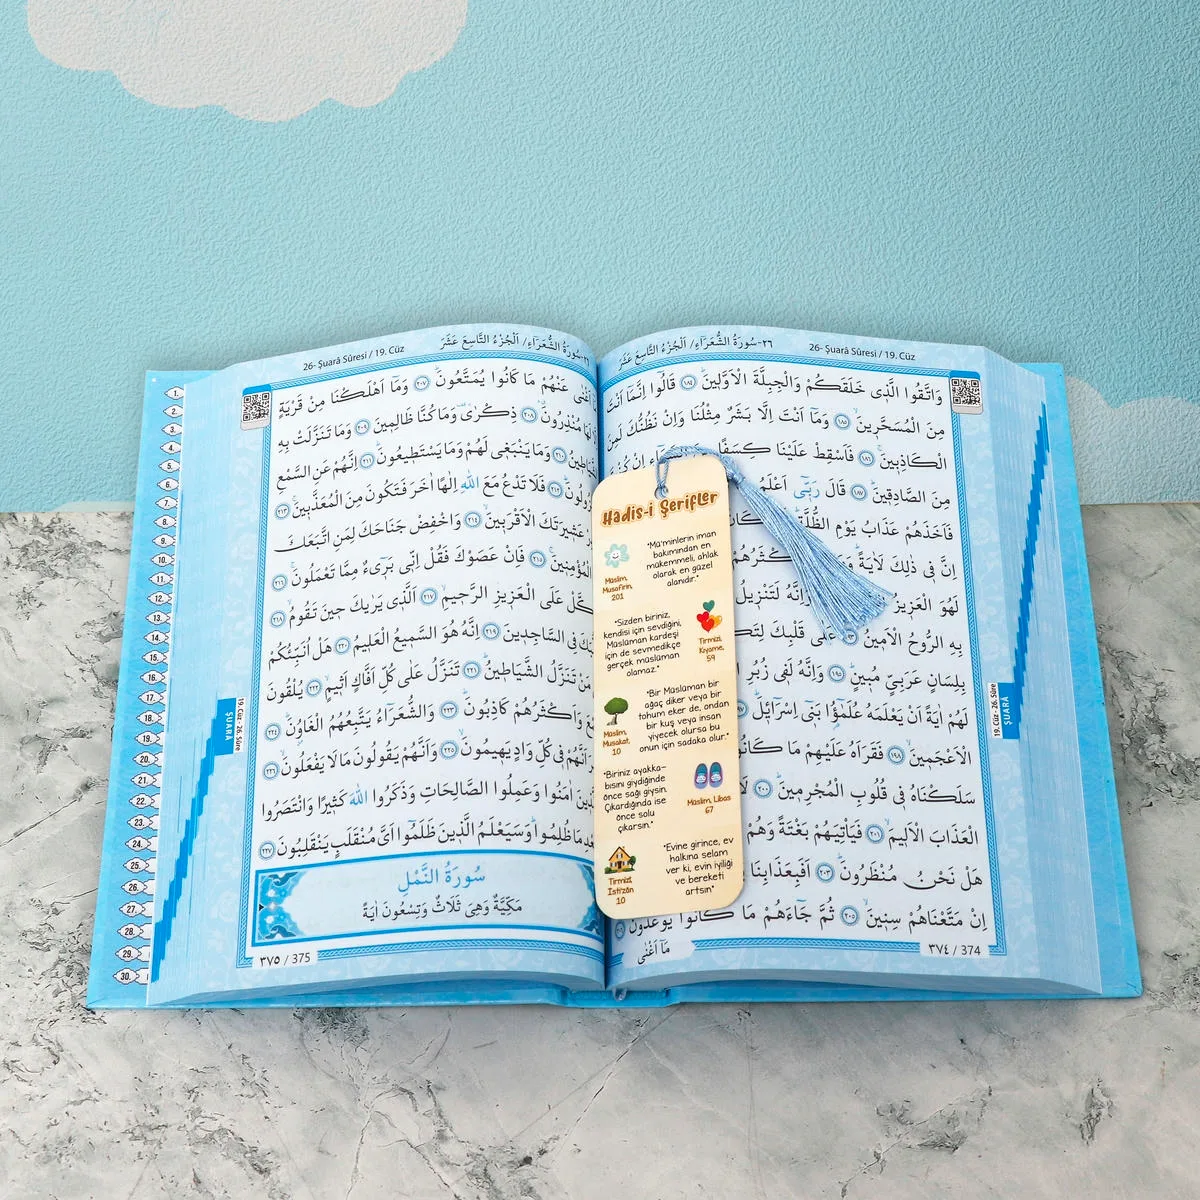 26- Şuarâ Sûresi / 19. Cüz
٢٦-سُورَةُ الشُّعَرَاءِ/ اَلْجُزْءُ التَّاسِعَ عَشَرَ
وَاتَّقُوا الَّذٖى خَلَقَكُمْ وَالْجِبِلَّةَ الْاَوَّلٖينَ ١٨٤ قَالُٓوا اِنَّمَٓا اَنْتَ
مِنَ الْمُسَحَّرٖينَ ١٨٥ وَمَٓا اَنْتَ اِلَّا بَشَرٌ مِثْلُنَا وَاِنْ نَظُنُّكَ لَمِنَ
الْكَاذِبٖينَ ١٨٦ فَاَسْقِطْ عَلَيْنَا كِسَفًا اِنْ كُنْتَ
مِنَ الصَّادِقٖينَ ١٨٧ قَالَ رَبّٖٓى اَعْلَمُ
فَاَخَذَهُمْ عَذَابُ يَوْمِ الظُّلَّةِ كَانَ
اِنَّ فٖى ذٰلِكَ لَاٰيَةً وَمَا اَكْثَرُهُمْ
لَهُوَ الْعَزٖيزُ وَاِنَّهُ لَتَنْزٖيلُ
بِهِ الرُّوحُ الْاَمٖينُ عَلٰى قَلْبِكَ لِتَكُونَ
بِلِسَانٍ عَرَبِىٍّ مُبٖينٍ ١٩٥ وَاِنَّهُ لَفٖى زُبُرِ
لَهُمْ اٰيَةً اَنْ يَعْلَمَهُ عُلَمٰٓؤُا بَنٖٓى اِسْرَٓائٖلَ
الْاَعْجَمٖينَ ١٩٨ فَقَرَاَهُ عَلَيْهِمْ مَا كَانُوا
سَلَكْنَاهُ فٖى قُلُوبِ الْمُجْرِمٖينَ ٢٠٠ لَا
الْعَذَابَ الْاَلٖيمَ ٢٠١ فَيَاْتِيَهُمْ بَغْتَةً وَهُمْ
هَلْ نَحْنُ مُنْظَرُونَ ٢٠٣ اَفَبِعَذَابِنَا
اِنْ مَتَّعْنَاهُمْ سِنٖينَ ٢٠٥ ثُمَّ جَٓاءَهُمْ مَا كَانُوا يُوعَدُونَ
مَٓا اَغْنٰى
٣٧٤ / 374
19. Cüz - 26. Sûre
ŞUARÂ
26- Şuarâ Sûresi / 19. Cüz
سُورَةُ الشُّعَرَاءِ/ اَلْجُزْءُ التَّاسِعَ عَشَرَ
اَغْنٰى عَنْهُمْ مَا كَانُوا يُمَتَّعُونَ ٢٠٧ وَمَٓا اَهْلَكْنَا مِنْ قَرْيَةٍ
لَهَا مُنْذِرُونَ ٢٠٨ ذِكْرٰى وَمَا كُنَّا ظَالِمٖينَ ٢٠٩ وَمَا تَنَزَّلَتْ بِهِ
٢١٠ وَمَا يَنْبَغٖى لَهُمْ وَمَا يَسْتَطٖيعُونَ ٢١١ اِنَّهُمْ عَنِ السَّمْعِ
٢١٢ فَلَا تَدْعُ مَعَ اللّٰهِ اِلٰهًا اٰخَرَ فَتَكُونَ مِنَ الْمُعَذَّبٖينَ ٢١٣
عَشٖيرَتَكَ الْاَقْرَبٖينَ ٢١٤ وَاخْفِضْ جَنَاحَكَ لِمَنِ اتَّبَعَكَ
الْمُؤْمِنٖينَ ٢١٥ فَاِنْ عَصَوْكَ فَقُلْ اِنّٖى بَرٖٓىءٌ مِمَّا تَعْمَلُونَ ٢١٦
عَلَى الْعَزٖيزِ الرَّحٖيمِ ٢١٧ اَلَّذٖى يَرٰيكَ حٖينَ تَقُومُ ٢١٨
فِى السَّاجِدٖينَ ٢١٩ اِنَّهُ هُوَ السَّمٖيعُ الْعَلٖيمُ ٢٢٠ هَلْ اُنَبِّئُكُمْ
مَنْ تَنَزَّلُ الشَّيَاطٖينُ ٢٢١ تَنَزَّلُ عَلٰى كُلِّ اَفَّاكٍ اَثٖيمٍ ٢٢٢ يُلْقُونَ
وَاَكْثَرُهُمْ كَاذِبُونَ ٢٢٣ وَالشُّعَرَٓاءُ يَتَّبِعُهُمُ الْغَاوُنَ ٢٢٤
اَنَّهُمْ فٖى كُلِّ وَادٍ يَهٖيمُونَ ٢٢٥ وَاَنَّهُمْ يَقُولُونَ مَا لَا يَفْعَلُونَ ٢٢٦
اٰمَنُوا وَعَمِلُوا الصَّالِحَاتِ وَذَكَرُوا اللّٰهَ كَثٖيرًا وَانْتَصَرُوا
ظُلِمُوا وَسَيَعْلَمُ الَّذٖينَ ظَلَمُٓوا اَىَّ مُنْقَلَبٍ يَنْقَلِبُونَ ٢٢٧
سُورَةُ النَّمْلِ
مَكِّيَّةٌ وَهِىَ ثَلَاثٌ وَتِسْعُونَ اٰيَةً
٣٧٥ / 375
19. Cüz - 26. Sûre
ŞUARÂ
1.
2.
3.
4.
5.
6.
7.
8.
9.
10.
11.
12.
13.
14.
15.
16.
17.
18.
19.
20.
21.
22.
23.
24.
25.
26.
27.
28.
29.
30.
Hadis-i Şerifler
"Mü'minlerin iman
bakımından en
mükemmeli, ahlak
olarak en güzel
olanıdır."
Müslim,
Müsafirin,
201
"Sizden biriniz,
kendisi için sevdiğini,
Müslüman kardeşi
için de sevmedikçe
gerçek müslüman
olamaz."
Tirmizi,
Kıyame,
59
"Bir Müslüman bir
ağaç diker veya bir
tohum eker de, ondan
bir kuş veya insan
yiyecek olursa bu
onun için sadaka olur."
Müslim,
Musakat,
10
"Biriniz ayakka-
bısını giydiğinde
önce sağı giysin.
Çıkardığında ise
önce solu
çıkarsın."
Müslim, Libas
67
"Evine girince, ev
halkına selam
ver ki, evin iyiliği
ve bereketi
artsın"
Tirmizi,
İsti'zân
10